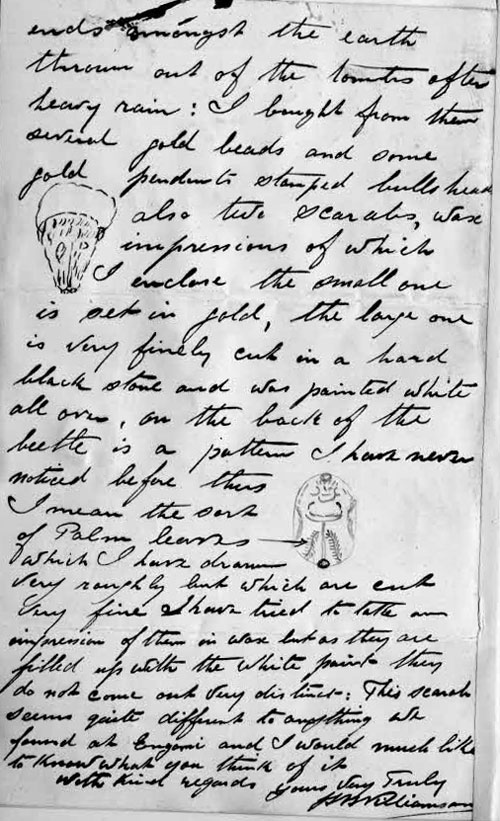 ends amongst the earth
thrown out of the tombs after
heavy rain: I bought from them
several gold beads and some
gold pendents stamped bulls head
also two scarabs, wax
impressions of which
I enclose the small one
is set in gold, the large one
is very finely cut in a hard
black stone and was painted white
all over, on the back of the
beetle is a pattern I have never
noticed before this
I mean the sort
of Palm leaves
which I have drawn
very roughly but which are cut
very fine I have tried to take an
impression of them in wax but as they are
filled up with the white paint they
do not come out very distinct: This scarab
seems quite different to anything we
found at Engomi and I would much like
to know what you think of it
with kind regards yours very Truly
Williamson